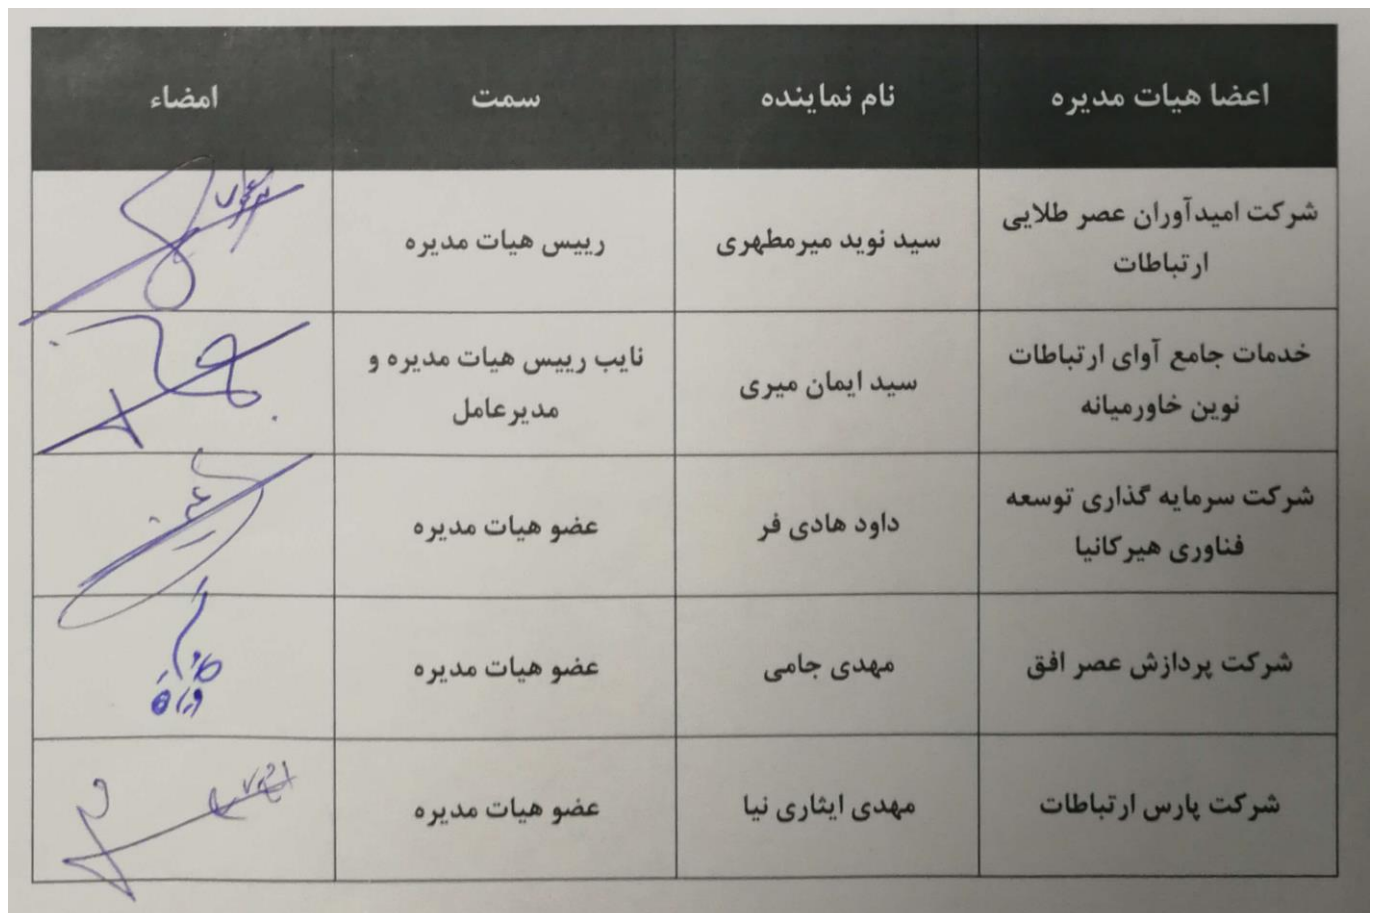 اعضا هیات مدیره
نام نماینده
سمت
امضاء
شرکت امیدآوران عصر طلایی
ارتباطات
سید نوید میرمطهری
رییس هیات مدیره
خدمات جامع آوای ارتباطات
نوین خاورمیانه
سید ایمان میری
نایب رییس هیات مدیره و
مدیرعامل
شرکت سرمایه گذاری توسعه
فناوری هیرکانیا
داود هادی فر
عضو هیات مدیره
شرکت پردازش عصر افق
مهدی جامی
عضو هیات مدیره
شرکت پارس ارتباطات
مهدی ایثاری نیا
عضو هیات مدیره